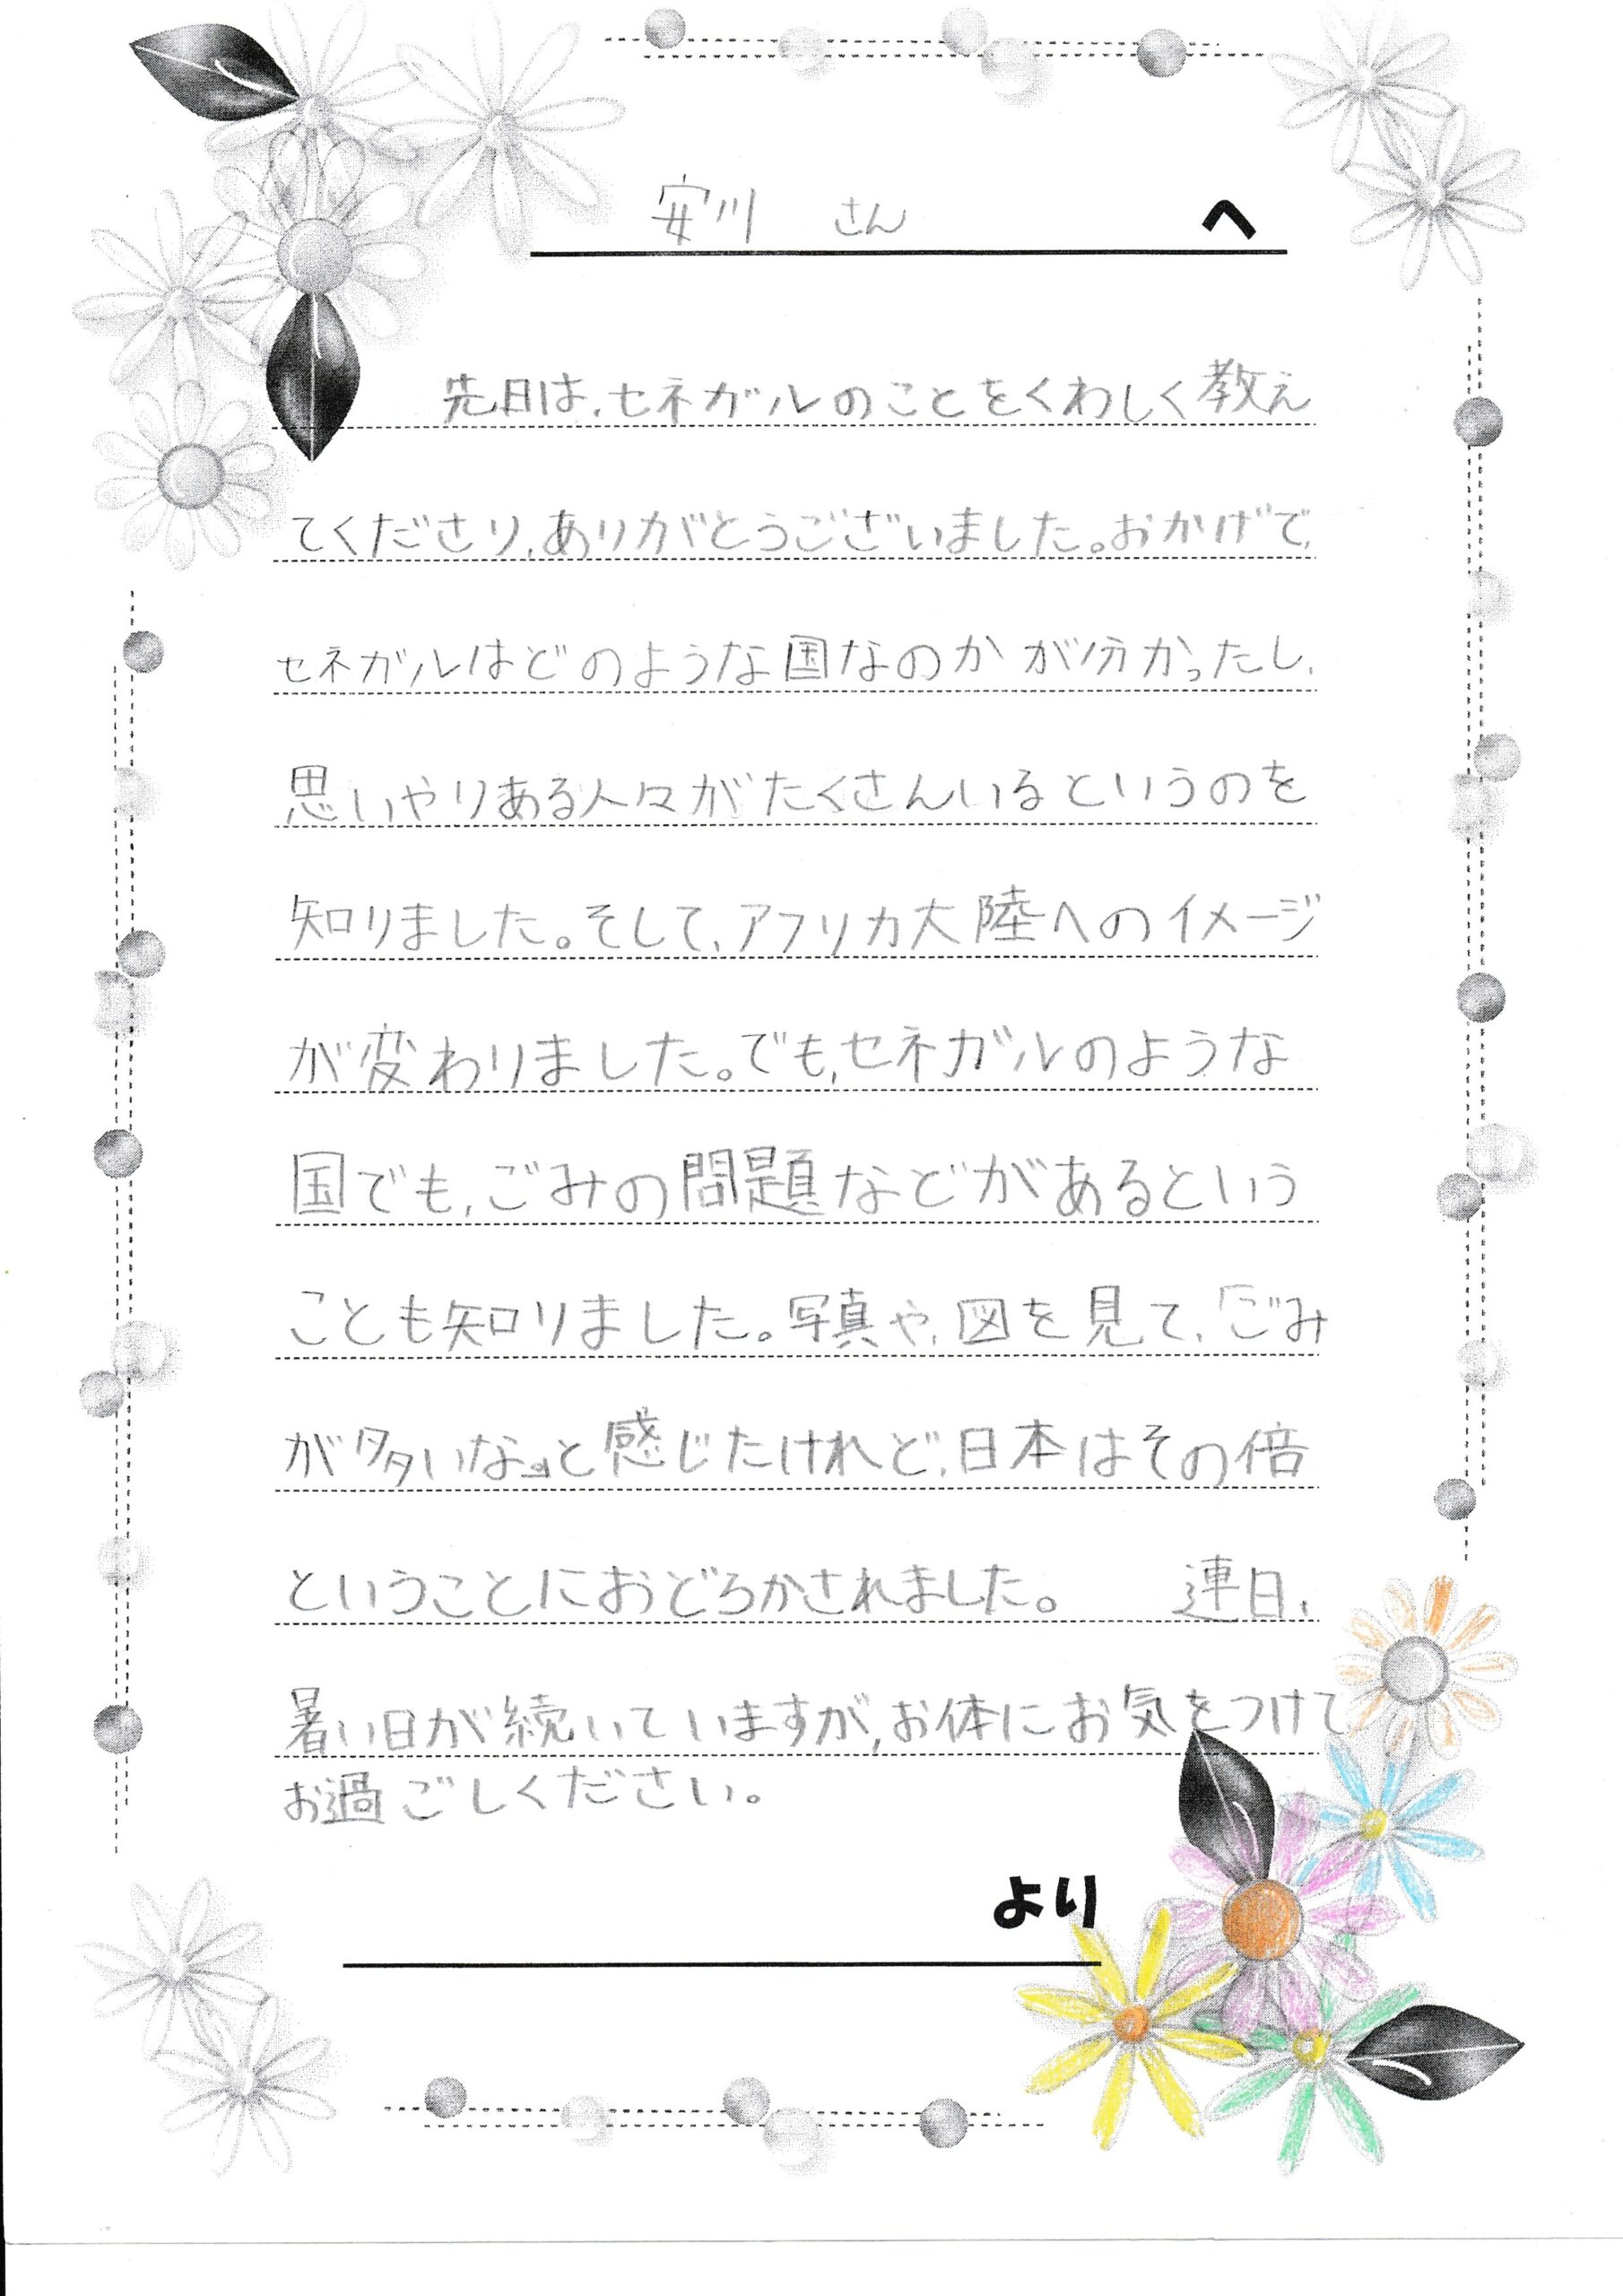 安川 さん へ
先日は、セネガルのことをくわしく教え
てくださり、ありがとうございました。おかげで、
セネガルはどのような国なのかが分かったし、
思いやりある人々がたくさんいるというのを
知りました。そして、アフリカ大陸へのイメージ
が変わりました。でも、セネガルのような
国でも、ごみの問題などがあるという
ことも知りました。写真や、図を見て、「ごみ
が多いな。」と感じたけれど、日本はその倍
ということにおどろかされました。 連日、
暑い日が続いていますが、お体にお気をつけて
お過ごしください。
より